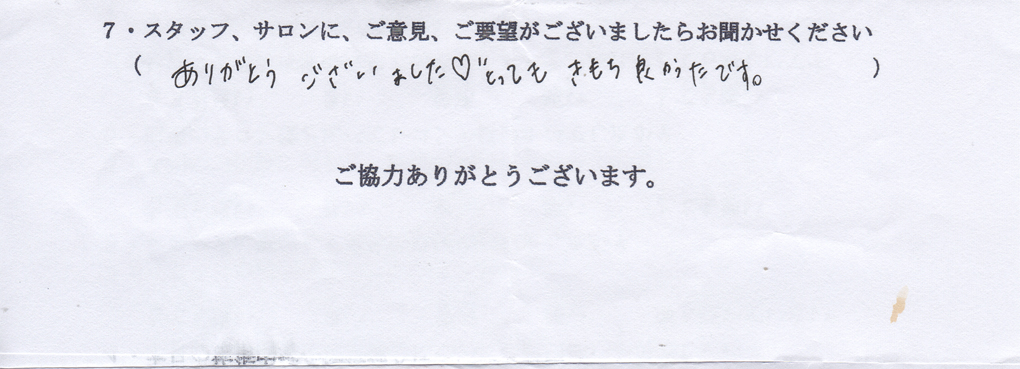 7・スタッフ、サロンに、ご意見、ご要望がございましたらお聞かせください
( ありがとう ございました♡”とっても きもち良かったです。 )
ご協力ありがとうございます。